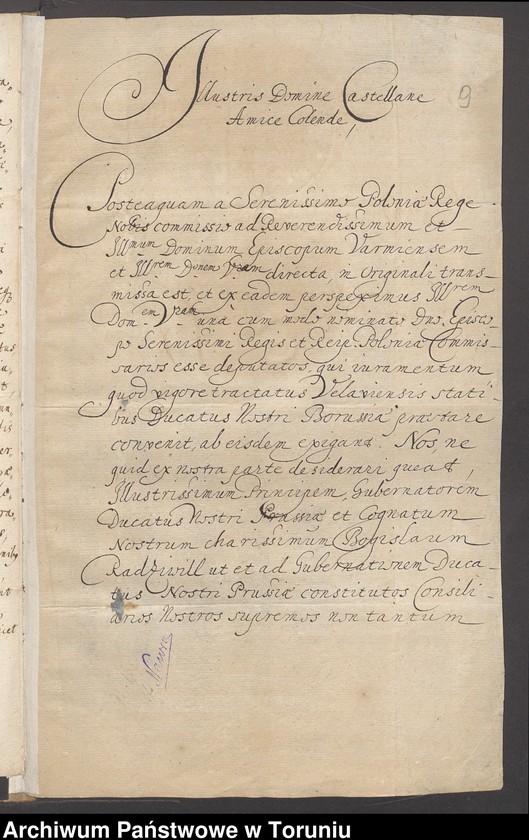 Illustris Domine Castellane
Amice Colende,
9
Posteaquam a Serenissimo Poloniæ Rege
Nobis commissio ad Reverendissimum et
Illmum Dominum Episcopum Varmiensem
et Illrem Dnnem Vram directa, in Originali trans-
missa est, et ex eadem perspeximus Illrem
Domem Vram unà cum modo nominato Dno. Episco-
po Serenissimi Regis et Reip. Poloniæ Commis-
sarios esse deputatos, qui iuramentum
quod vigore tractatus Velaviensis stati-
bus Ducatus Nostri Borussiæ præstare
convenit, ab eisdem exigant. Nos ne
quid ex nostra parte desiderari queat,
Illustrissimum Principem, Gubernatorem
Ducatus Nostri Prussiæ et Cognatum
Nostrum charissimum Bogislaum
Radziwill ut et ad Gubernationem Duca-
tus Nostri Prussiæ constitutos Consili-
arios Nostros supremos non tantum
Archiwum Państwowe w Toruniu